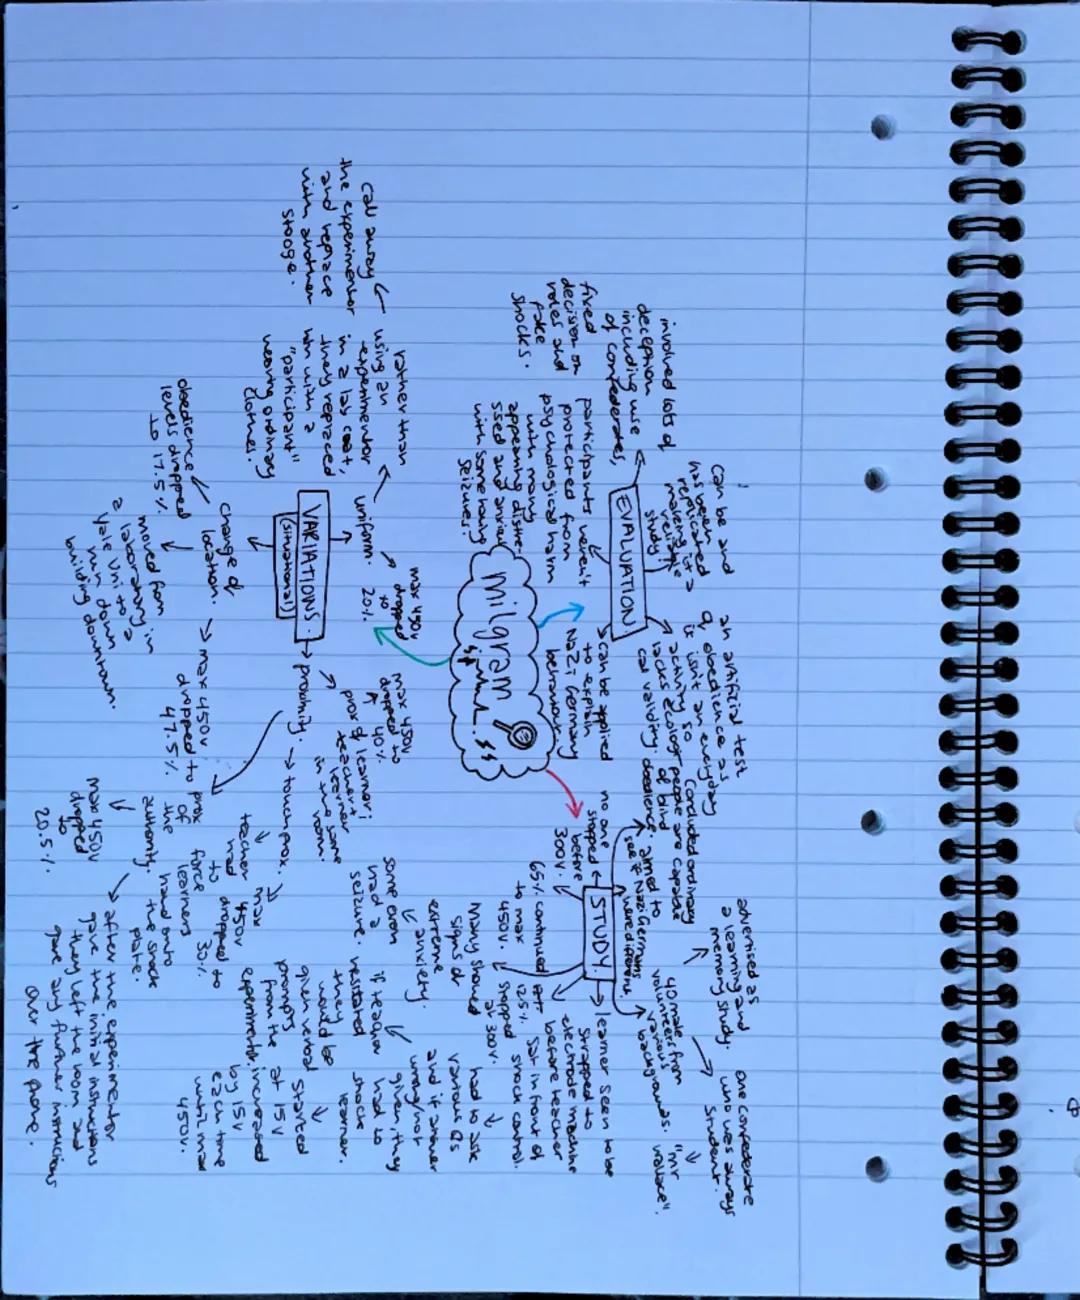 Milgram
EVALUATION
involved lots of
deception
including use
of confederates,
fixed
decision on
roles and
fake
shocks.
participants weren't
protected from
psychological harm
with many
appearing distre-
ssed and anxious
with some having
seizures.
can be and
has been
replicated
making it a
reliable
study
an artificial test
of obedience as
it isn't an everyday
activity so
lacks ecologi-
cal validity.
can be applied
to explain
Nazi Germany
behaviour
STUDY.
Conducted ordinary
people are capable
of blind
obedience. aimed to
see if Nazi Germans
were different.
advertised as
a learning and
memory study.
40 male
volunteers from
various
backgrounds.
one confederate
who was always
student.
"mr
wallace".
no one
stopped
before
300V.
65% continued
to max
450V.
12.5%
stopped
at 300V.
learner seen to be
strapped to
electrode machine
before teacher
sat in front of
shock control.
had to ask
various Qs
and if answer
wrong/not
given, they
had to
shock
learner.
started
at 15V
increased
by 15V
each time
until max
450V.
if teacher
hesitated
they
would be
given verbal
prompts
from the
experimenter.
Many showed
signs of
extreme
anxiety.
some even
had a
seizure.
VARIATIONS.
(situational)
uniform.
max 450V
dropped
to
20%.
rather than
using an
experimentor
in a lab coat,
they replaced
him with a
"participant"
wearing ordinary
clothes.
call away
the experimentor
and replace
with another
stooge.
change of
location.
obedience
levels dropped
to 17.5%
moved from
a laboratory in
Yale Uni to a
run down
building downtown.
max 450V
dropped to
47.5%
proximity.
prox of learner;
teacher +
learner
in the same
room.
max 450V
dropped to
40%.
touch prox.
teacher
had
to
force
learners
hand onto
the shock
plate.
max
450V
dropped to
30%.
prox
of
the
authority.
max 450V
dropped
to
20.5%.
after the experimentor
gave the initial instructions
they left the room and
gave any further instructions
over the phone.